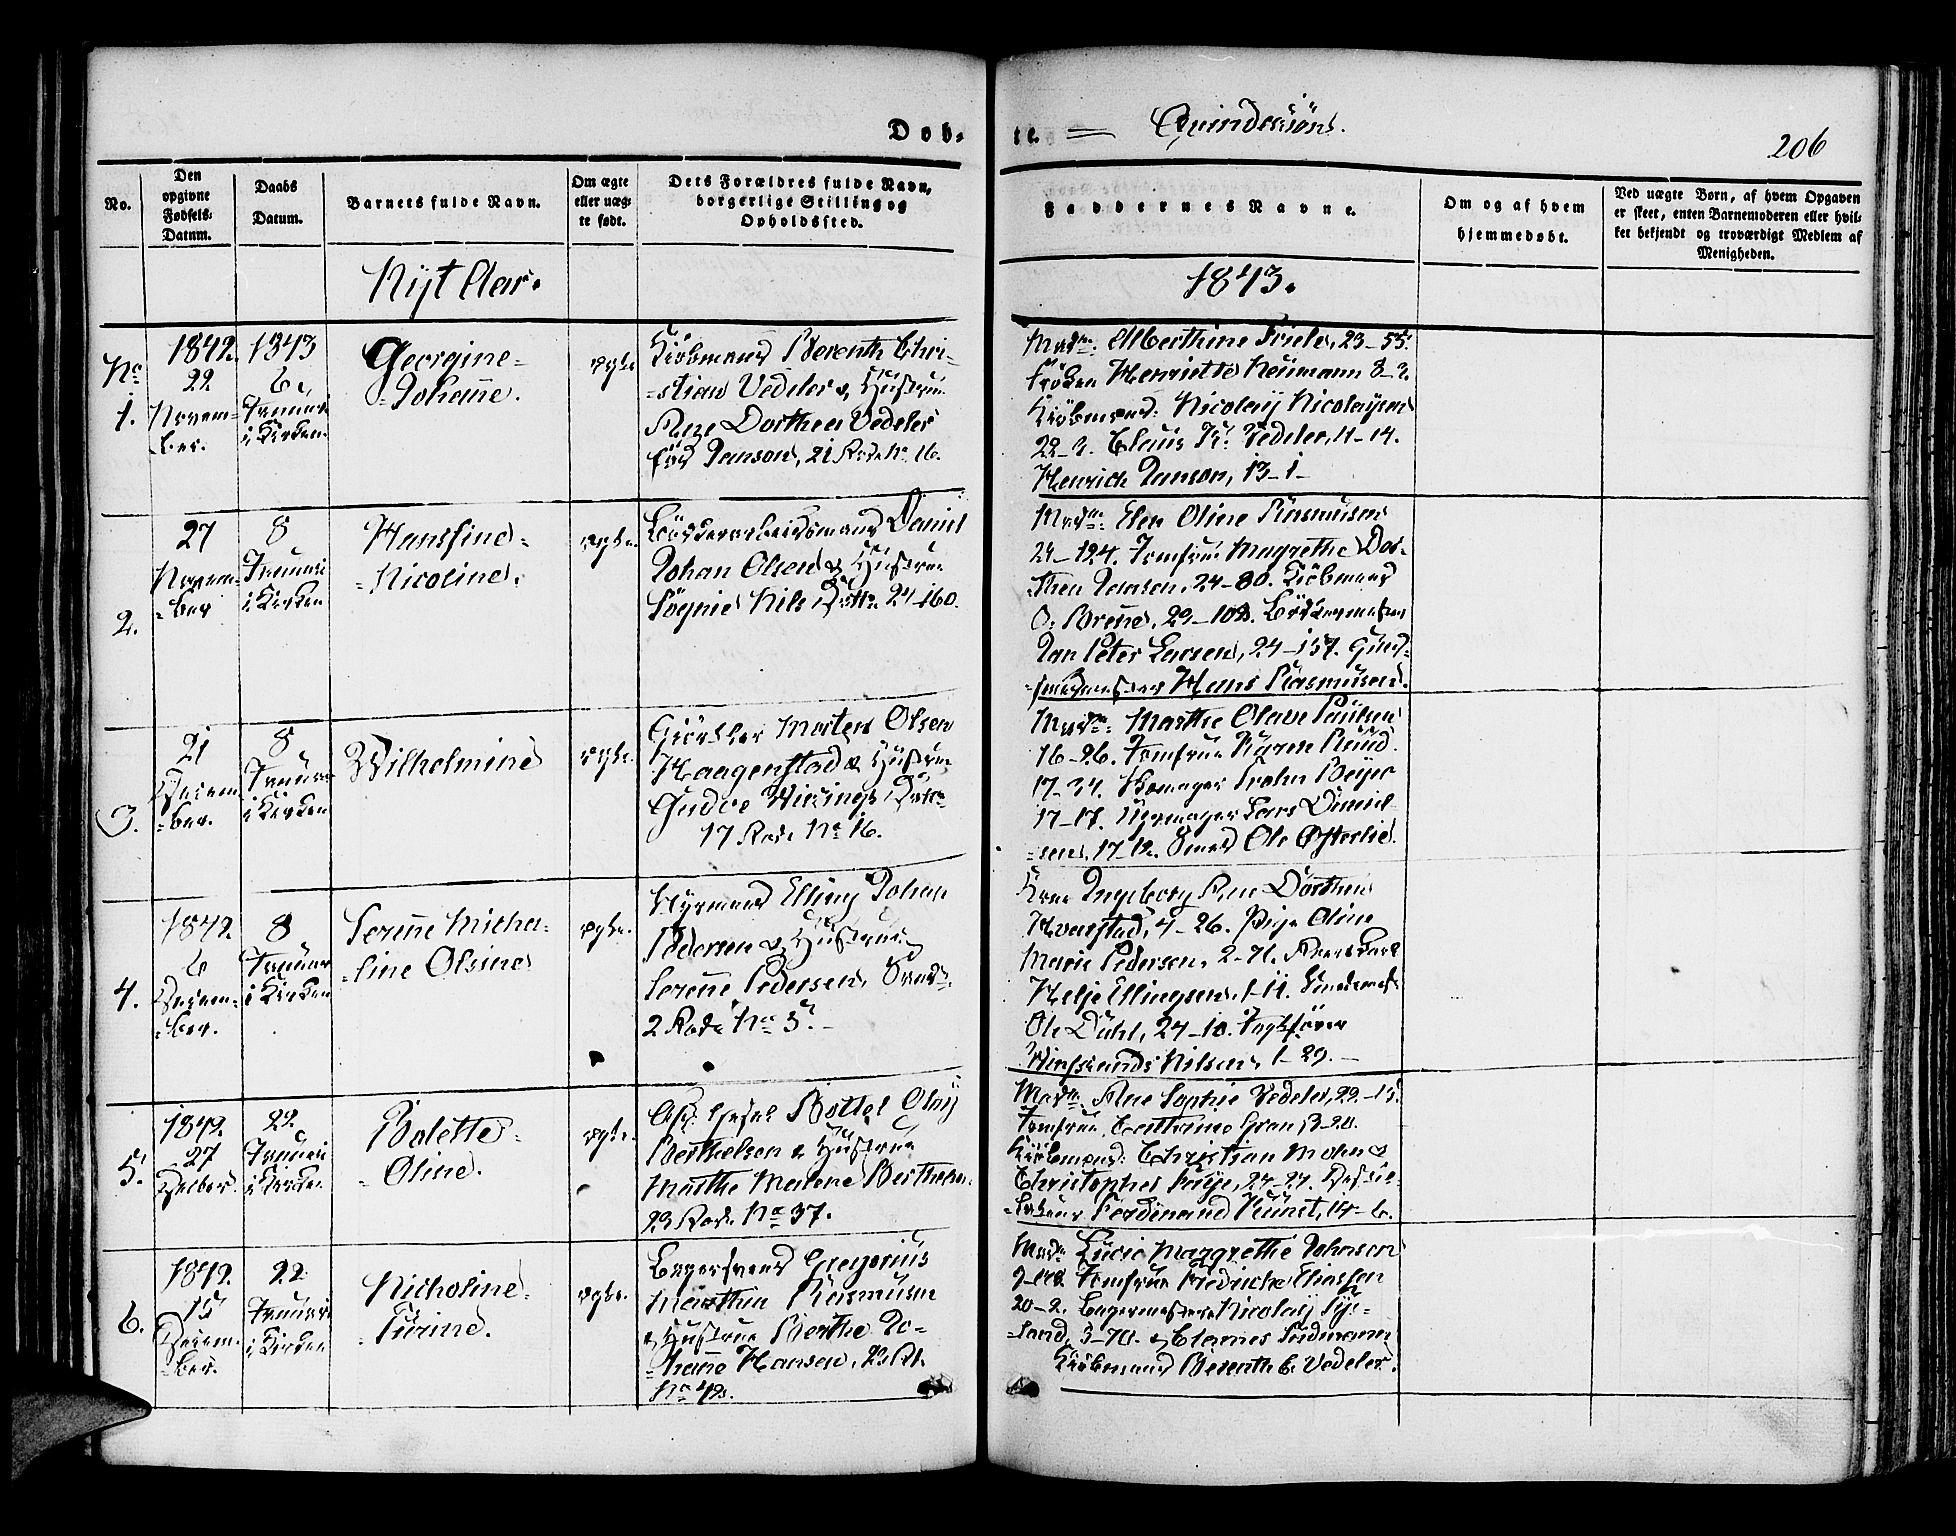 Døb-
te. = Qvindekiøn.
206
No.
Den
opgivne
Fødsels-
Datum.
Daabs
Datum.
Barnets fulde Navn.
Om ægte
eller uæg-
te født.
Dets Forældres fulde Navn,
borgerlige Stilling og
Opholdssted.
Faddernes Navne.
Om og af hvem
hjemmedøbt.
Ved uægte Børn, af hvem Opgaven
er skeet, enten Barnemoderen eller hvil-
ket bekjendt og troværdigt Medlem af
Menigheden.
Nyt Aar.
1843.
No
1.
1842.
22
Novem-
ber.
1843
6
Januari
i Kirken
Georgine-
-Johanne.
ægte
Kiøbmand Berenth Chri-
-stian Vedeler & Hustrue
Ane Dorthea Vedeler
fød Janson, 21 Rode No 16.
Madm: Alberthine Friele, 23-55.
Frøken Henriette Neumann 8-2.
Kiöbmænd: Nicolay Nicolaysen
22-2. Claus Vedeler, 11-14.
Henrich Janson, 13-1-
2.
27
Novem-
-ber
8
Januari
i Kirken
Hansine-
-Nicoline.
ægte.
Daniel
Johan Olsen & Hustrue
Søgnie Nils Datter 24-160.
Madm: Elen Oline Rasmusen
24-124. Jomfrue Magrethe Dor-
-thea Janson, 24-80. Kiöbmand
O. Brene, 23-102. Bödkermester
Jan Peter Larsen, 24-157. Guld-
-smedmester Hans Rasmusen.
3.
21
Decem-
-ber.
8
Januari
i Kirken
Wilhelmine
ægte.
Giørtler Morten Olsen
Haagenstad & Hustrue
Gudve Wikings Datter
17 Rode No 16.
Madm: Marthe Olave Paulsen
16-26. Jomfrue Karen Ruud.
17-34. Beyer
17-17. Lars Daniel-
-sen, 17-12. Smed Ole Østerlie.
4.
1842.
6
Decem-
-ber.
8
Januar
i Kirken
Serine Micha-
-line Olsine
ægte.
Styrmand Elling Johan
Pedersen & Hustrue
Serine Pedersen,
2 Rode No 5. -
Kone Ingeborg Ane Dorthea
Hvarstad, 4-26. Pige Oline
Marie Pedersen, 2-71.
Helje Ellingsen, 1-11.
Ole Dahl, 24-10.
Nilsen, 1-29. -
5.
1842.
27
Decber.
22
Januari
i Kirken
Bolette-
-Oline.
ægte.
Bottel Olay
Berthelsen & Hustrue
Marthe Malene Berthelsen
23 Rode No 37.
Madm. Ane Sophie Vedeler, 22-15.
Jomfrue Cathrine Gran, 3-20.
Kiöbmænd: Christian Mohn &
Christopher Faye, 24-24.
Ferdinand Kunst, 14-6.
6.
1842.
15
Decem-
-ber.
22
Januari
i Kirken
Nicholine-
-Turine.
ægte.
Bagersvend Gregorius
Marthin Rasmusen
& Hustrue Berthe Jo-
-hanne Hansen,
No 42.
Madm Lucie Margrethe Johnsen
Jomfrue Fredricke Eliassen
20-2. Bagermester Nicolay Sys-
-land, 3-70. &
Kiöbmand Berenth C. Vedeler.